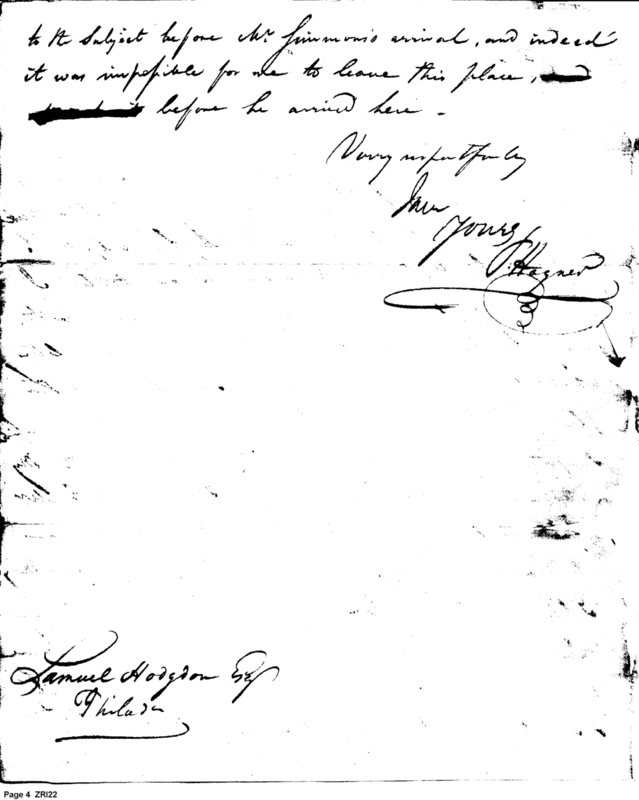 to the Subject before Mr. Simmons's arrival, and indeed
it was impossible for me to leave this place,
before he arrived here -
Very respectfully
I am
Yours
P Hagner
Samuel Hodgdon Esqr
Philada
Page 4 ZRI22